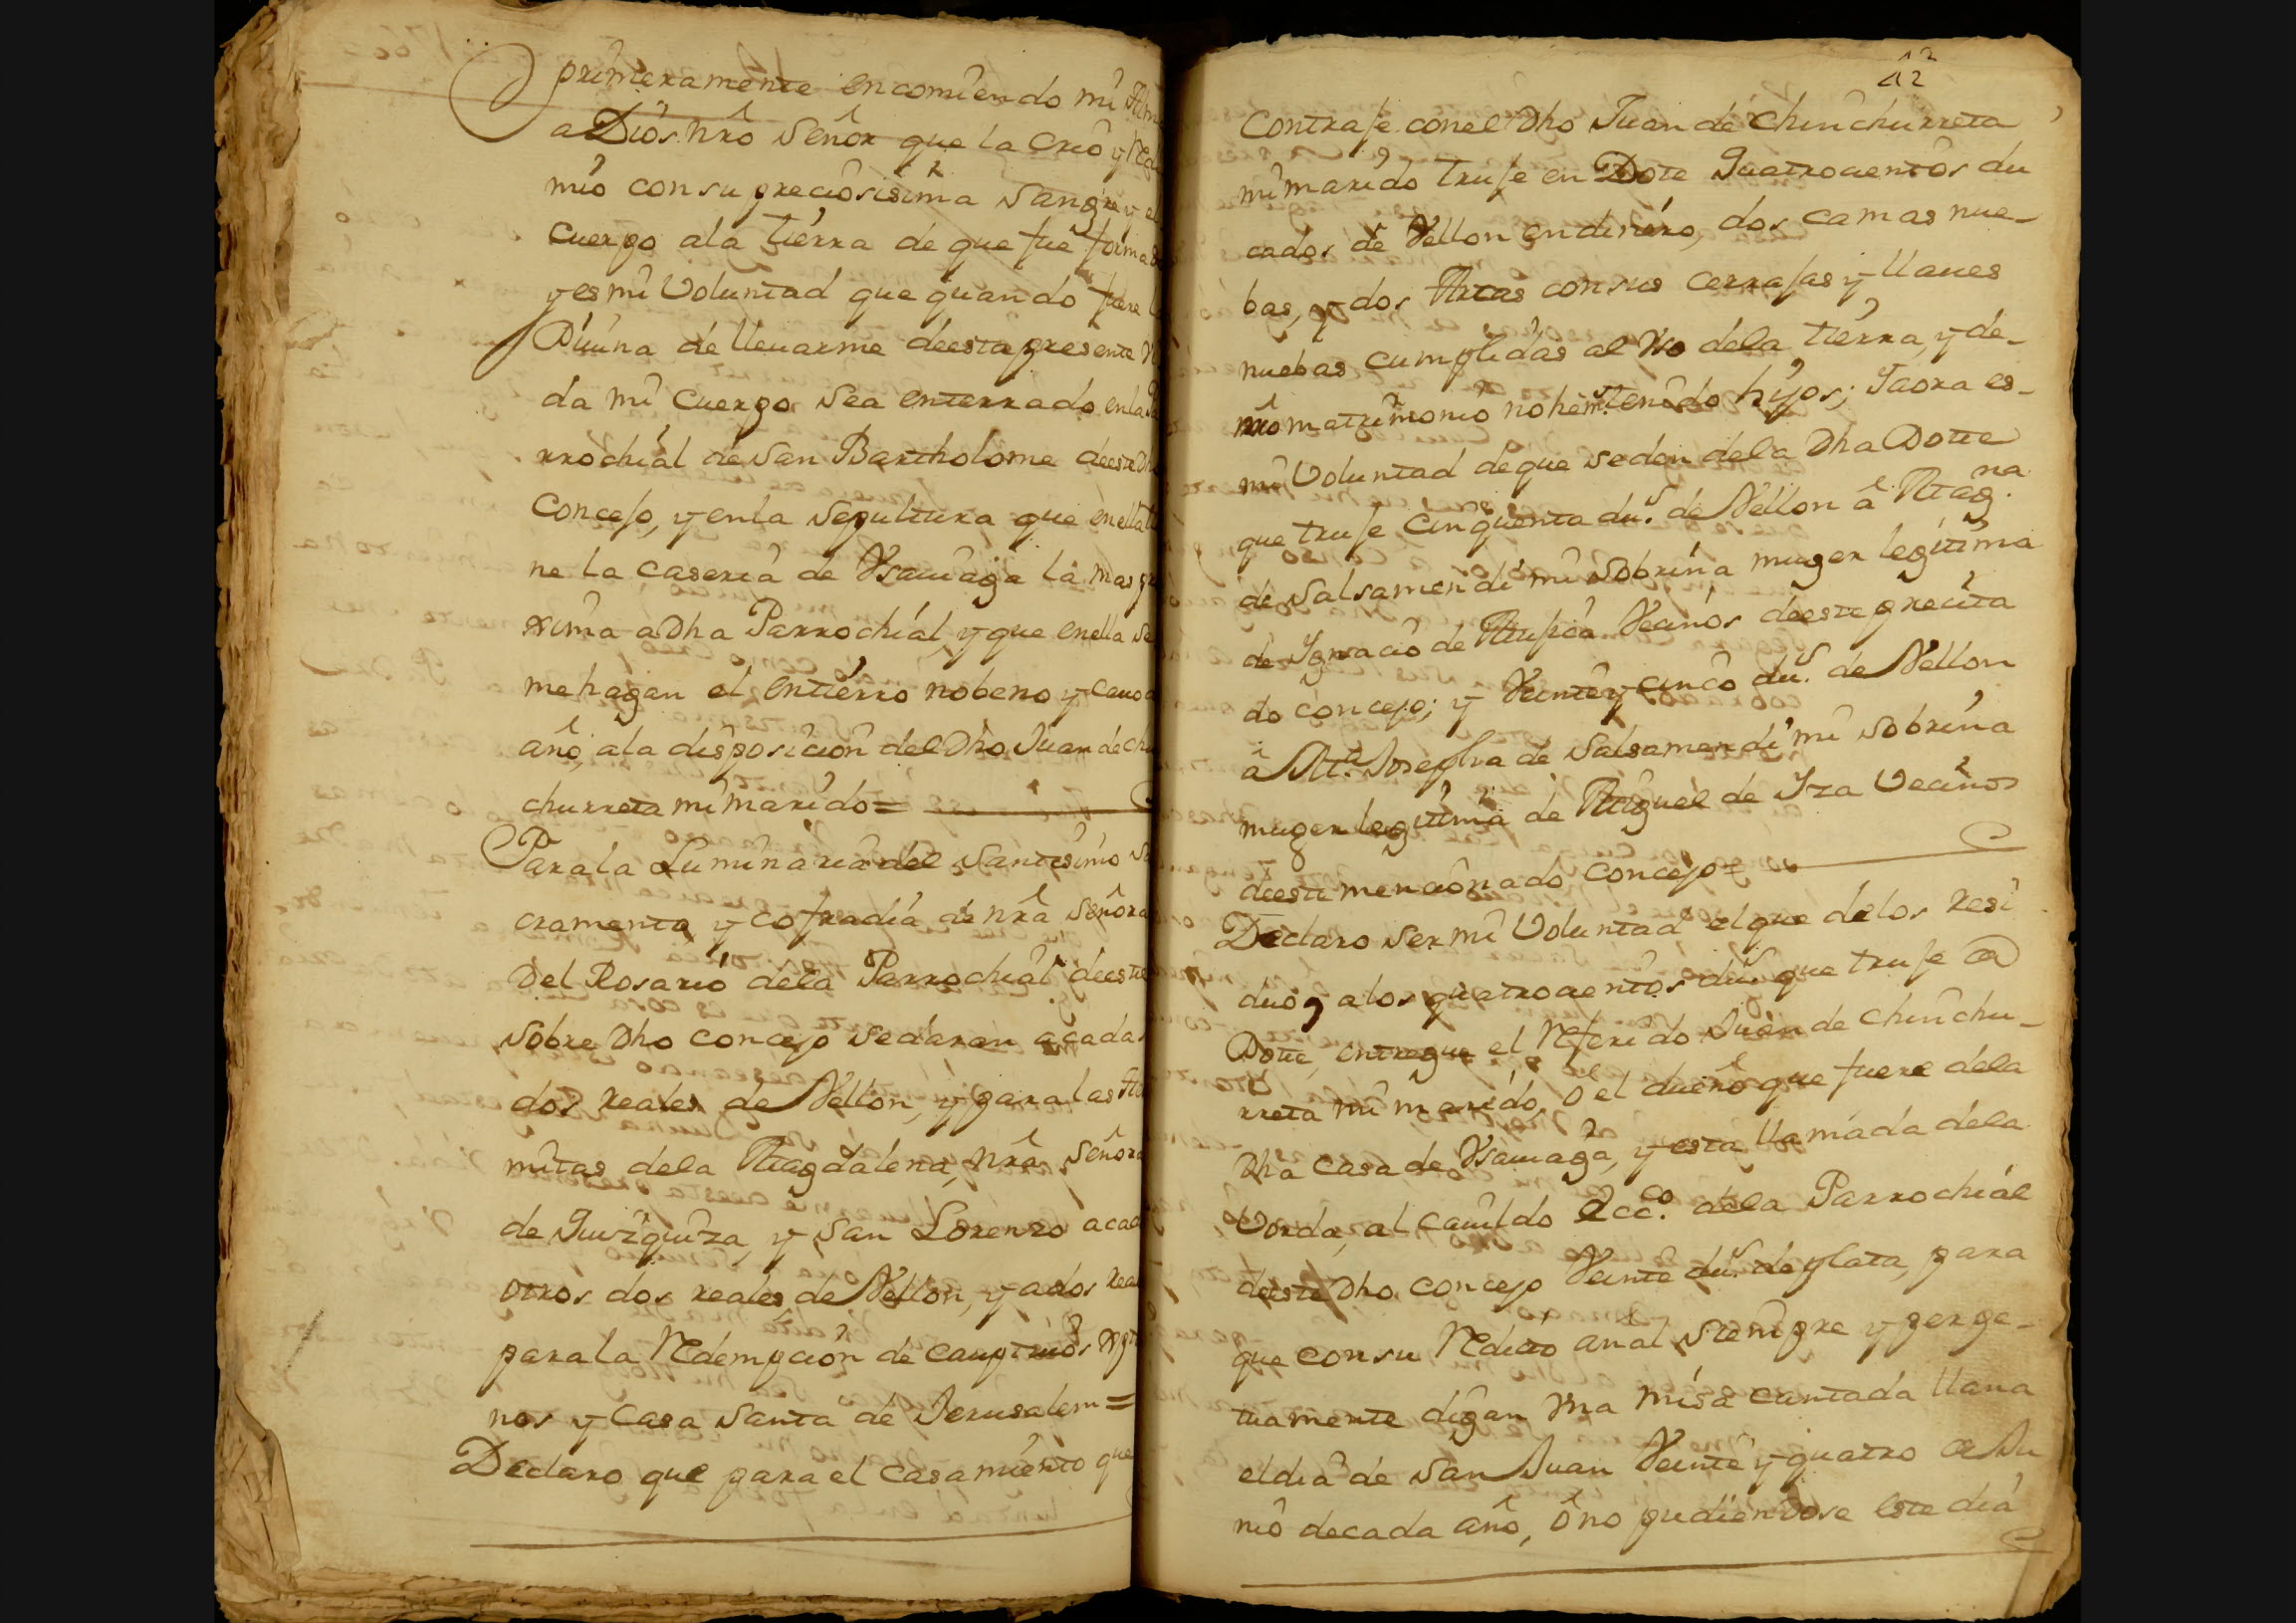 primeramente encomiendo mi Alm
a Dios nrô Señor que la Crio y Redi
mio con su preciosisima Sangre, y el
cuerpo ala tierra de que fue forma
y es mi Voluntad que quando fuere la
Diuina de lleuarme deesta presente Vi
da mi cuerpo sea enterrado en la Pa
rrochial de San Bartholome deeste Dh
Concejo, y en la Sepultura que en ella ti
ne la caseria de Vsauiaga la mas pr
xima a Dha Parrochial, y que en ella se
me hagan el entierro nobeno y cauo d
año, ala disposicion del Dho Juan de Chi
churreta mi marido =
Para la Luminaria del Santisimo Sa
cramento, y cofradia de nrâ Señora
Del Rosario dela Parrochial deeste
sobre Dho concejo se daran a cada
dos reales de Vellon, y para las Her
mitas dela Magdalena, nrâ Señora
de Guizquiza, y San Lorenzo a cad
otros dos reales de Vellon, y a dos rea
para la Redempcion de captiuos xptia
nos y Casa Santa de Jerusalem =
Declaro que para el casamiento que
12
Contraje con el Dho Juan de Chinchurreta
mi marido truje en Dote Quatrocientos du
cados de Vellon en dinero, dos camas nue-
bas, y dos Arcas con sus cerrajas y llaues
nuebas cumplidas al Vso dela tierra, y de-
nrô matrimonio no hemos tenido hijos; Y aora es-
mi Voluntad de que se den de la Dha Dotte
que truje cinquenta dus. de Vellon â Magna.
de Salsamendi mi Sobrina muger legitima
de Ygnacio de Vecinos deeste precita
do concejo; y Veinte y cinco dus. de Vellon
â Ma. Josepha de Salsamendi mi Sobrina
muger legitima de Miguel de Yza Vecinos
deeste mencionado Concejo =
Declaro ser mi Voluntad el que de los resi
duos a los quatrocientos dus. que truje en
Dotte, entregue el Referido Juan de Chinchu-
rreta mi marido, ô el dueño que fuere dela
Dha casa de Vsauiaga, y esta llamada dela
Vorda, al Cauildo Ecco. dela Parrochial
deeste Dho Concejo Veinte dus. de plata, para
que con su Redito anal siempre y perpe-
tuamente digan Vna Misa cantada llana
el dia de San Juan Veinte y quatro de Ju
nio de cada año, ô no pudiendose este dia